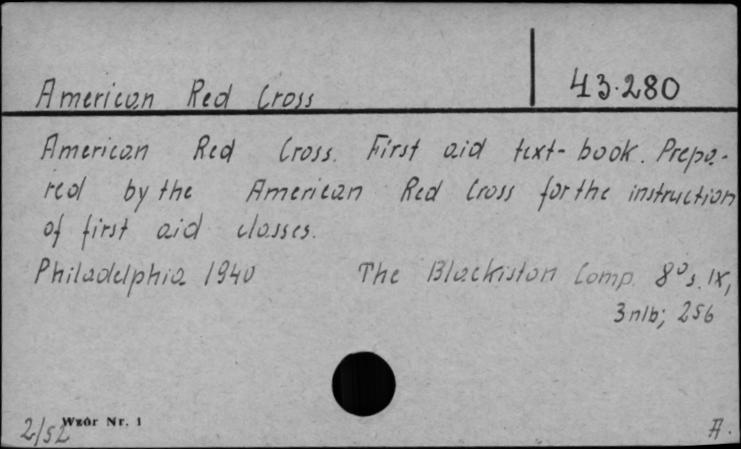 American Red Cross
43.280
American Red Cross. First aid text-book. Prepa-
red by the American Red Cross for the instruction
of first aid classes.
Philadelphia 1940 The Blackiston Comp. 8°s. IX,
3nlb; 256
2/52 Wzór Nr. 1
A.